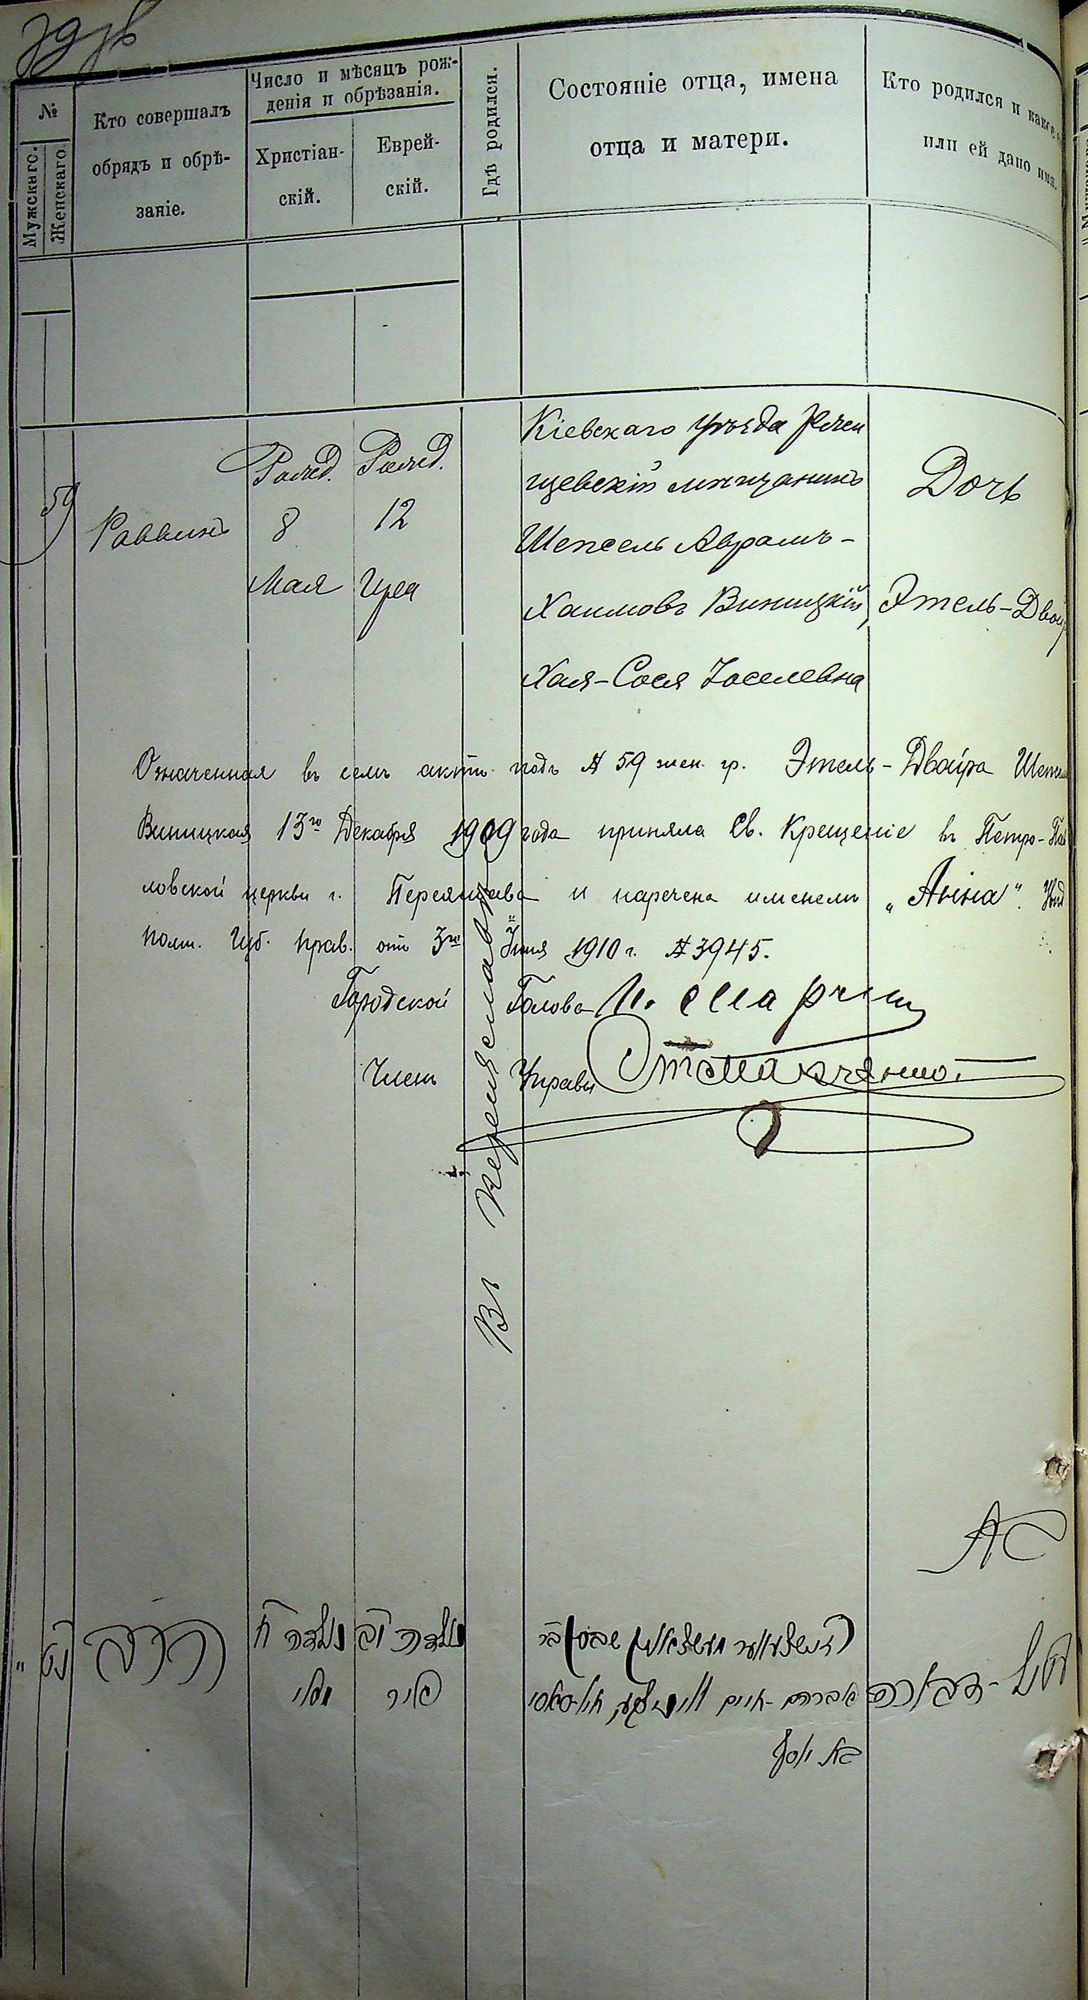 №
Мужскаго.
Женскаго.
Кто совершалъ
обрядъ и обрѣ-
заніе.
Число и мѣсяцъ рож-
денія и обрѣзанія.
Христіан-
скій.
Еврей-
скій.
Гдѣ родился.
Состояніе отца, имена
отца и матери.
Кто родился и какое
или ей дано имя.
59
Раввинъ
Рожд.
8
Мая
Рожд.
12
Іяра
Въ Переяславѣ
Кіевскаго уѣзда Ржи
щевскій мѣщанинъ
Шепсель Аврамъ-
Хаимовъ Виницкій,
Хая-Сося Іоселевна
Дочь
Этель-Двой
Означенная въ семъ актѣ подъ № 59 жен. гр. Этель-Двойра Шепсе
Виницкая 13го Декабря 1909 года приняла Св. Крещеніе въ Петро-Пав
ловской церкви г. Переяслава и наречена именемъ „Анна".
Полт. Губ. Прав. отъ 3го Іюня 1910 г. № 3945.
Городской Голова
Членъ Управы
נט
הרב
נולדה ח
מאי
נולדה יב
אייר
אברהם-חיים
בת יוסף